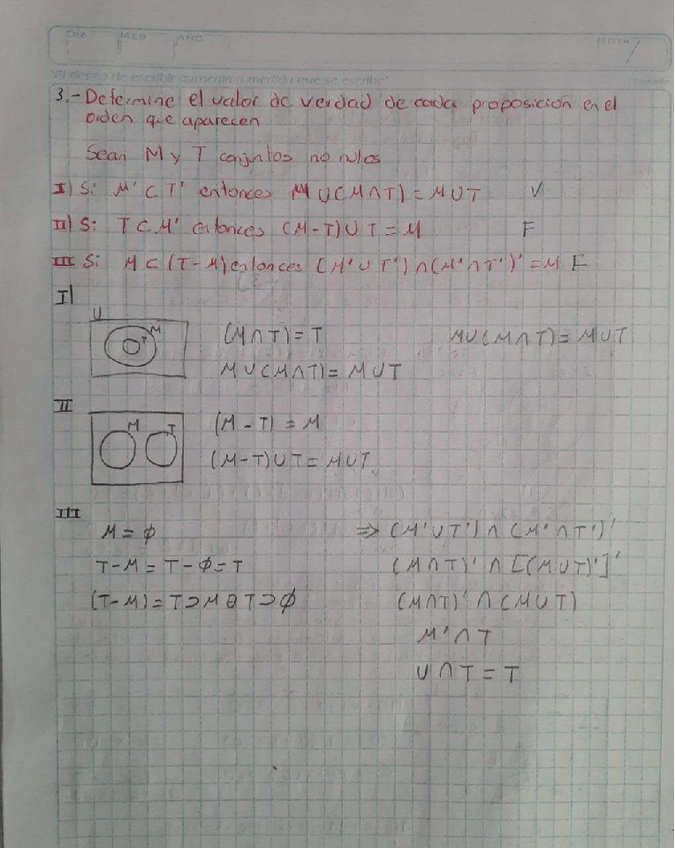 DIA MES AÑO NOTA
"El deseo de escribir aumenta a medida que se escribe"
3.- Determine el valor de verdad de cada proposición en el
orden que aparecen
Sean M y T conjuntos no nulos
I) Si M' ⊂ T' entonces M ∪ (M ∩ T) = M ∪ T V
II) Si T ⊂ M' entonces (M - T) ∪ T = M F
III Si M ⊂ (T - M) entonces (M' ∪ T') ∩ (M' ∩ T')' = M F
I)
U
M
T
(M ∩ T) = T M ∪ (M ∩ T) = M ∪ T
M ∪ (M ∩ T) = M ∪ T
II
M T
(M - T) = M
(M - T) ∪ T = M ∪ T
III
M = ϕ ⇒ (M' ∪ T') ∩ (M' ∩ T')'
T - M = T - ϕ = T (M ∩ T)' ∩ [(M ∪ T)']'
(T - M) = T ⊃ M θ T ⊃ ϕ (M ∩ T)' ∩ (M ∪ T)
M' ∩ T
U ∩ T = T